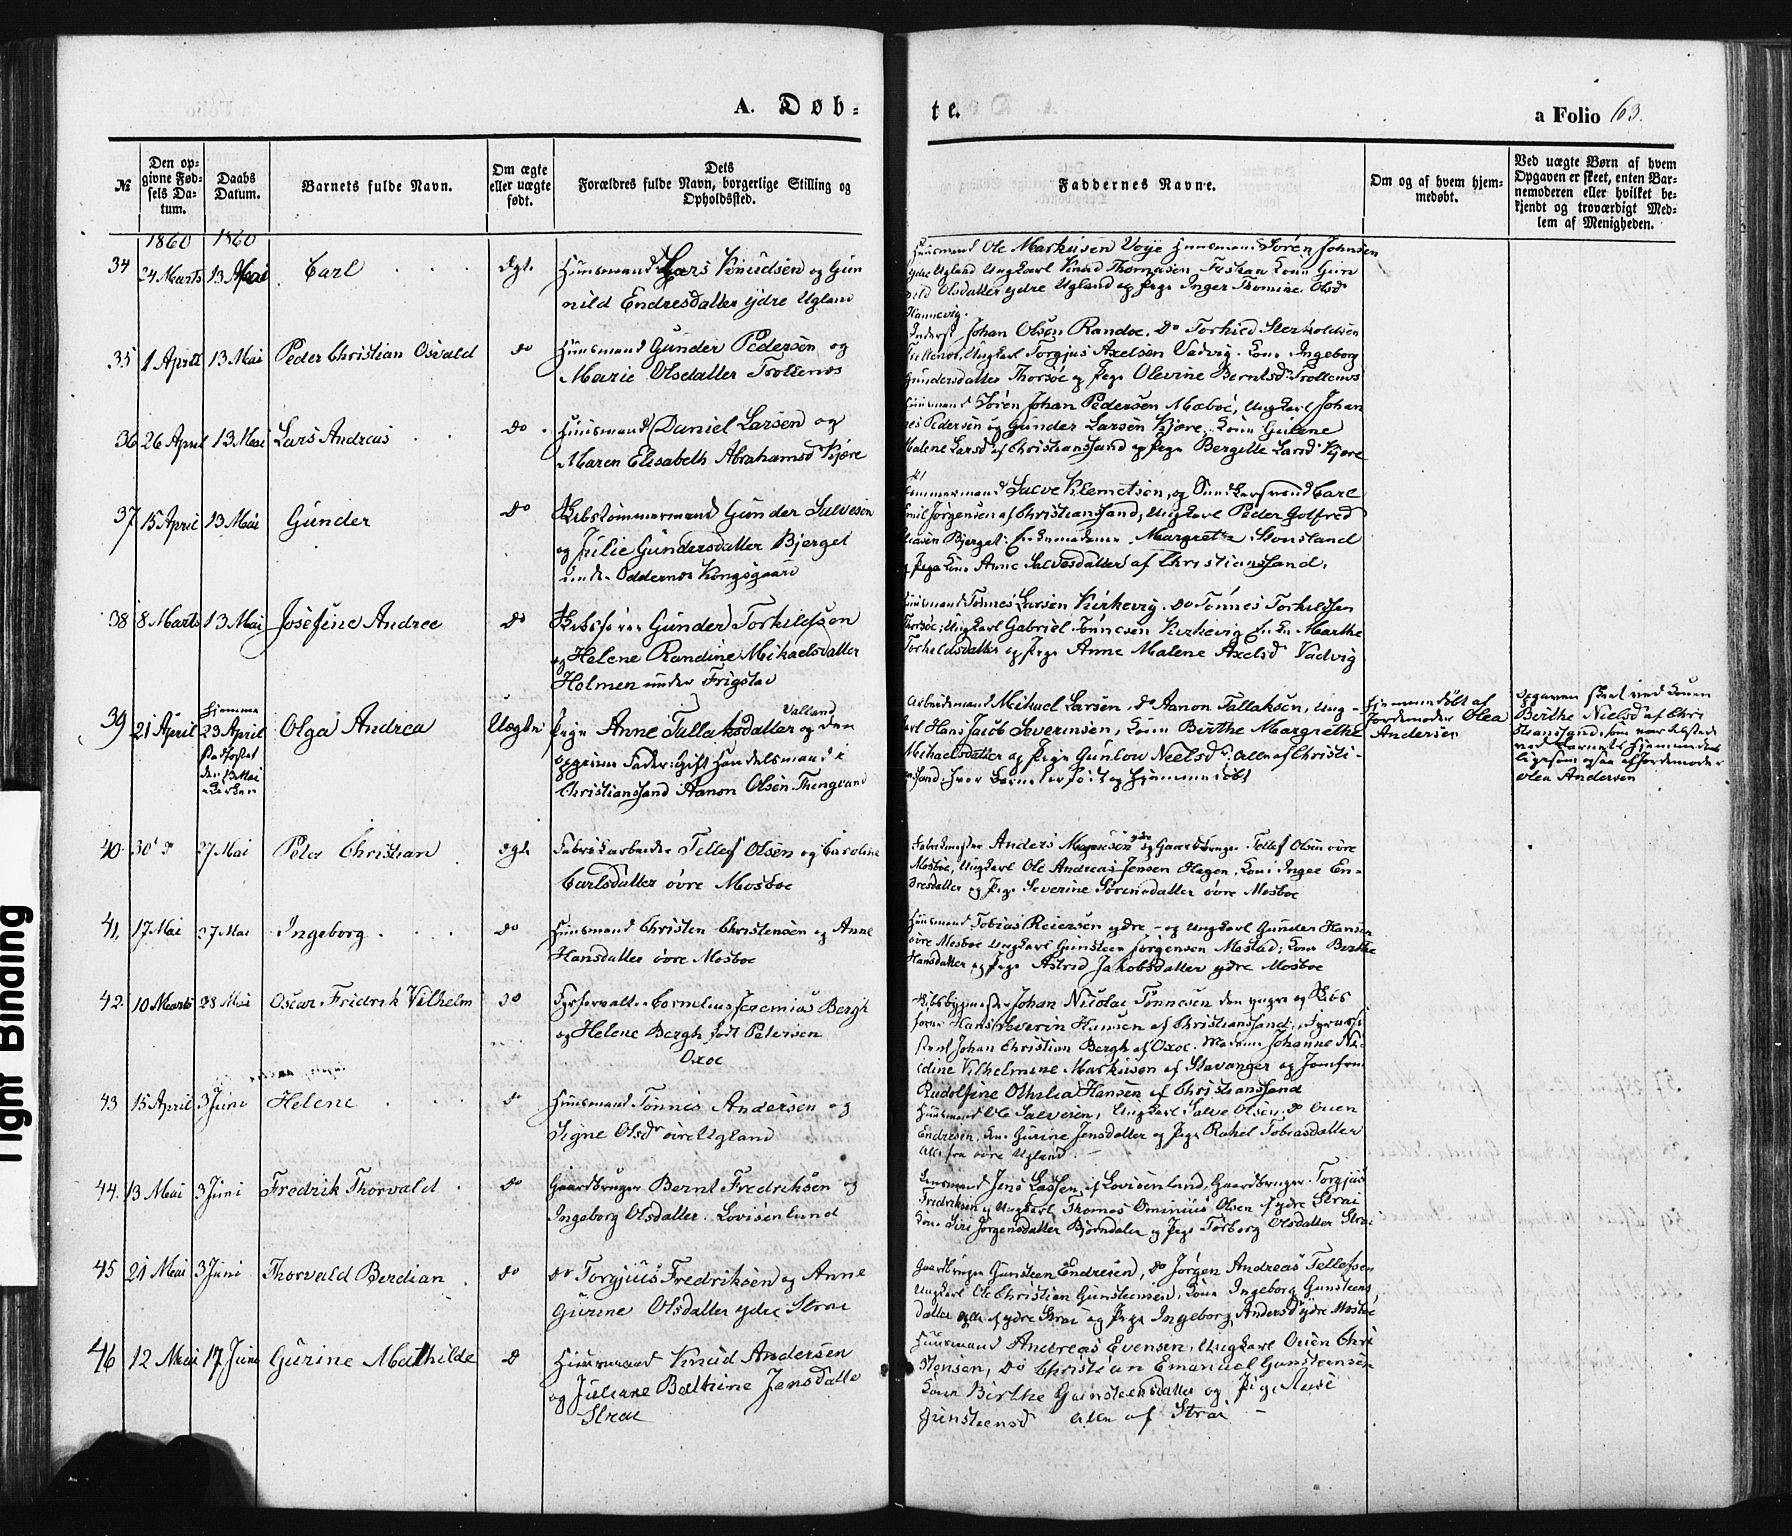 A. Døb-
te.
a Folio 63.
№
Den op-
givne Fød-
sels Da-
tum.
Daabs
Datum.
Barnets fulde Navn.
Om ægte
eller uægte
født.
Dets
Forældres fulde Navn, borgerlige Stilling og
Opholdssted.
Faddernes Navne.
Om og af hvem hjem-
medøbt.
Ved uægte Børn af hvem
Opgaven er skeet, enten Bar-
nemoderen eller hvilket be-
kjendt og troværdigt Med-
lem af Menigheden.
1860 1860
34 24 Marts 13 Mai Carl Ægte
Huusmand Lars Knudsen og Gun
nild Endresdatter ydre Ugland
Huusmand Ole Markusen Voje Huusmand Sören Johnsen
ydre Ugland Ungkarl Knud Thomasen Kone Gun
nild Olsdatter ydre Ugland og Pige Inger Thomine Olsd
Hannevig.
35 1 April 13 Mai Peder Christian Osvald do
Huusmand Gunder Pedersen og
Marie Olsdatter Trollenes
Inderst Johan Olsen Randøe. Do Torkild
Trollenes, Ungkarl Torgjus Axelsen Vadvig. Kone Ingeborg
Gundersdatter Thorsöe og Pige Olevine Berntsd Trollenes
36 26 April 13 Mai Lars Andreas do
Huusmand Daniel Larsen og
Maren Elisabeth Abrahamsd Kjære
Huusmand Sören Johan Pedersen Mæbøe, Ungkarl Johan
nes Pedersen og Gunder Larsen Kjære. Kone Gurine
Malene Larsd af Christianssand og Pige Bergitte Larsd Kjære
37 15 April 13 Mai Gunder do
Skibstömmermand Gunder Salvesen
og Julie Gundersdatter Bjerget
under Oddernes Kongsgaard
Tömmermand Salve Klemetsen, og Carl
Emil Jørgensen af Christianssand, Ungkarl Peder Gotfred
Bjerget. Margrete Stensland
og Pige Anne Salvesdatter af Christianssand.
38 8 Marts 13 Mai Josefine Andree do
Skibsfører Gunder Torkildsen
og Helene Randine Mikaelsdatter
Holmen under Frigstad
Huusmand Tönnes Larsen Kirkevig. Do Tönnes Torkildsen
Thorsöe, Ungkarl Gabriel Tönnesen Kirkevig Marthe
Torkildsdatter og Pige Anne Malene Axelsd Vadvig
39 21 April Hjemme
23 April
Stadfæstet
den 13 Mai
i Kirken
Olga Andrea Uægte
Pige Anne Tallaksdatter Valland og den
opgivne Fader: Gift Handelsmand i
Christianssand Aanon Olsen Thingvand
Arbeidsmand Mikael Larsen, do Aanon Tallaksen, Ung-
karl Hans Jacob Severinsen, Kone Birthe Margrethe
Mikaelsdatter og Pige Gunlov Neelsd. Alle af Christi-
anssand, hvor Barnet er født og hjemmedøbt
Hjemmedøbt af
Jordemoder Olea
Andersen
Opgaven skeet ved Konen
Berthe Nielsd af Chri
stianssand, som var tilstede
ved Barnets Hjemmedaab
ligesom ogsaa af Jordemoder
Olea Andersen
40. 30 27 Mai Peter Christian Ægte
Fabrikarbeider Tellef Olsen og Caroline
Carlsdatter övre Mosbøe
Fabrikmester Anders Magnusen ydre og Gaardbruger Tellef Olsen övre
Mosbøe, Ungkarl Ole Andreas Jensen Hagen, Kone Inger En-
dresdatter og Pige Severine Sörensdatter övre Mosbøe
41, 17 Mai 27 Mai Ingeborg do
Huusmand Christen Christensen og Anne
Hansdatter övre Mosboe
Huusmand Tobias Reiersen ydre og Ungkarl Gunder Hansen
övre Mosboe Ungkarl Gunsteen Jörgensen Mestad, Kone Birthe
Hansdatter og Pige Astrid Jakobsdatter ydre Mosboe
42. 10 Marts 28 Mai Oscar Fridrik Vilhelm do
Fyrforvalter Cornelius Jeremias Bergh
og Helene Bergh født Petersen
Oxöe
Skibsbygmester Johan Nicolai Tönnesen den yngre og Skibs
fører Hans Severin Hansen af Christianssand, Fyrassi
stent Johan Christian Bergh af Oxöe. Madam Johanne Na-
dine Vilhelmine Markusen af Stavanger og Jomfru
Rudolfine Othilia Hansen af Christianssand
43 15 April 3 Juni Helene do
Huusmand Tönnes Andersen og
Signe Olsdr övre Ugland
Huusmand Ole Salvesen, Ungkarl Salve Olsen, do Ouen
Endresen, Kone Gurine Jensdatter og Pige Rakel Tobiasdatter
Alle fra övre Ugland.
44. 13 Mai 3 Juni Fredrik Thorvald do
Gaardbruger Bernt Fredriksen og
Ingeborg Olsdatter. Lovisenlund
Huusmand Jens Lassen af Lovisenlund, Gaardbruger Torgjus
Fredriksen og Ungkarl Thomas Ominius Olsen af ydre Strai
Kone Siri Jørgensdatter Bjørndalen og Pige Torborg Olsdatter Strai
45 21 Mai 3 Juni Thorvald Berdian do
do Torgjus Fredriksen og Anne
Gurine Olsdatter ydre Strai
Gaardbruger Gunsteen Endresen, do Jørgen Andreas Tellefsen
Ungkarl Ole Christian Gunsteensen, Kone Ingeborg Gunsteens
datter alle af ydre Strai og Pige Ingeborg Andersd ydre Mosboe
46 12 Mai 17 Juni Gurine Mathilde do
Huusmand Knud Andersen
og Juliane Bolthine Jensdatte
Strai
Huusmand Andreas Evensen, Ungkarl Ouen Chri
stensen, Do Christian Emanuel Gunsteensen
Kone Birthe Gunsteensdatter og Pige
Gunsteensd Alle af Strai
Tight Binding